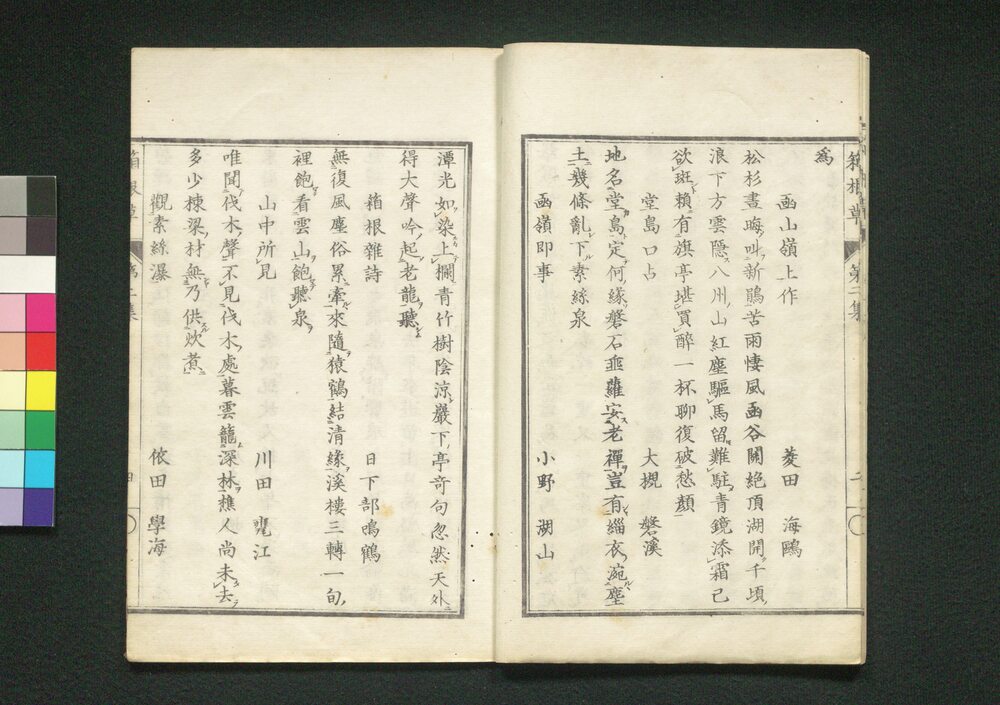 箱根草 第二集
為
函山嶺上作 菱田 海鷗
松杉晝晦叫新鵑苦雨悽風函谷關絶頂湖開千頃
浪下方雲隱八州山紅塵驅馬留難駐青鏡添霜已
欲斑賴有旗亭堪買醉一杯聊復破愁顏
堂島口占 大槻 磐溪
地名堂島定何緣磐石匝蘿安老禪豈有緇衣涴塵
土幾條亂下素絲泉
函嶺即事 小野 湖山
潭光如染上欄青竹樹陰涼巖下亭奇句忽然天外
得大聲吟起老龍聽
箱根雜詩 日下部鳴鶴
無復風塵俗累牽來隨猿鶴結清緣溪樓三轉一旬
裡飽看雲山飽聽泉
山中所見 川田 甕江
唯聞伐木聲不見伐木處暮雲籠深林樵人尚未去
多少棟梁材無乃供炊煮
觀素絲瀑 依田 學海
箱根草 第二集 四